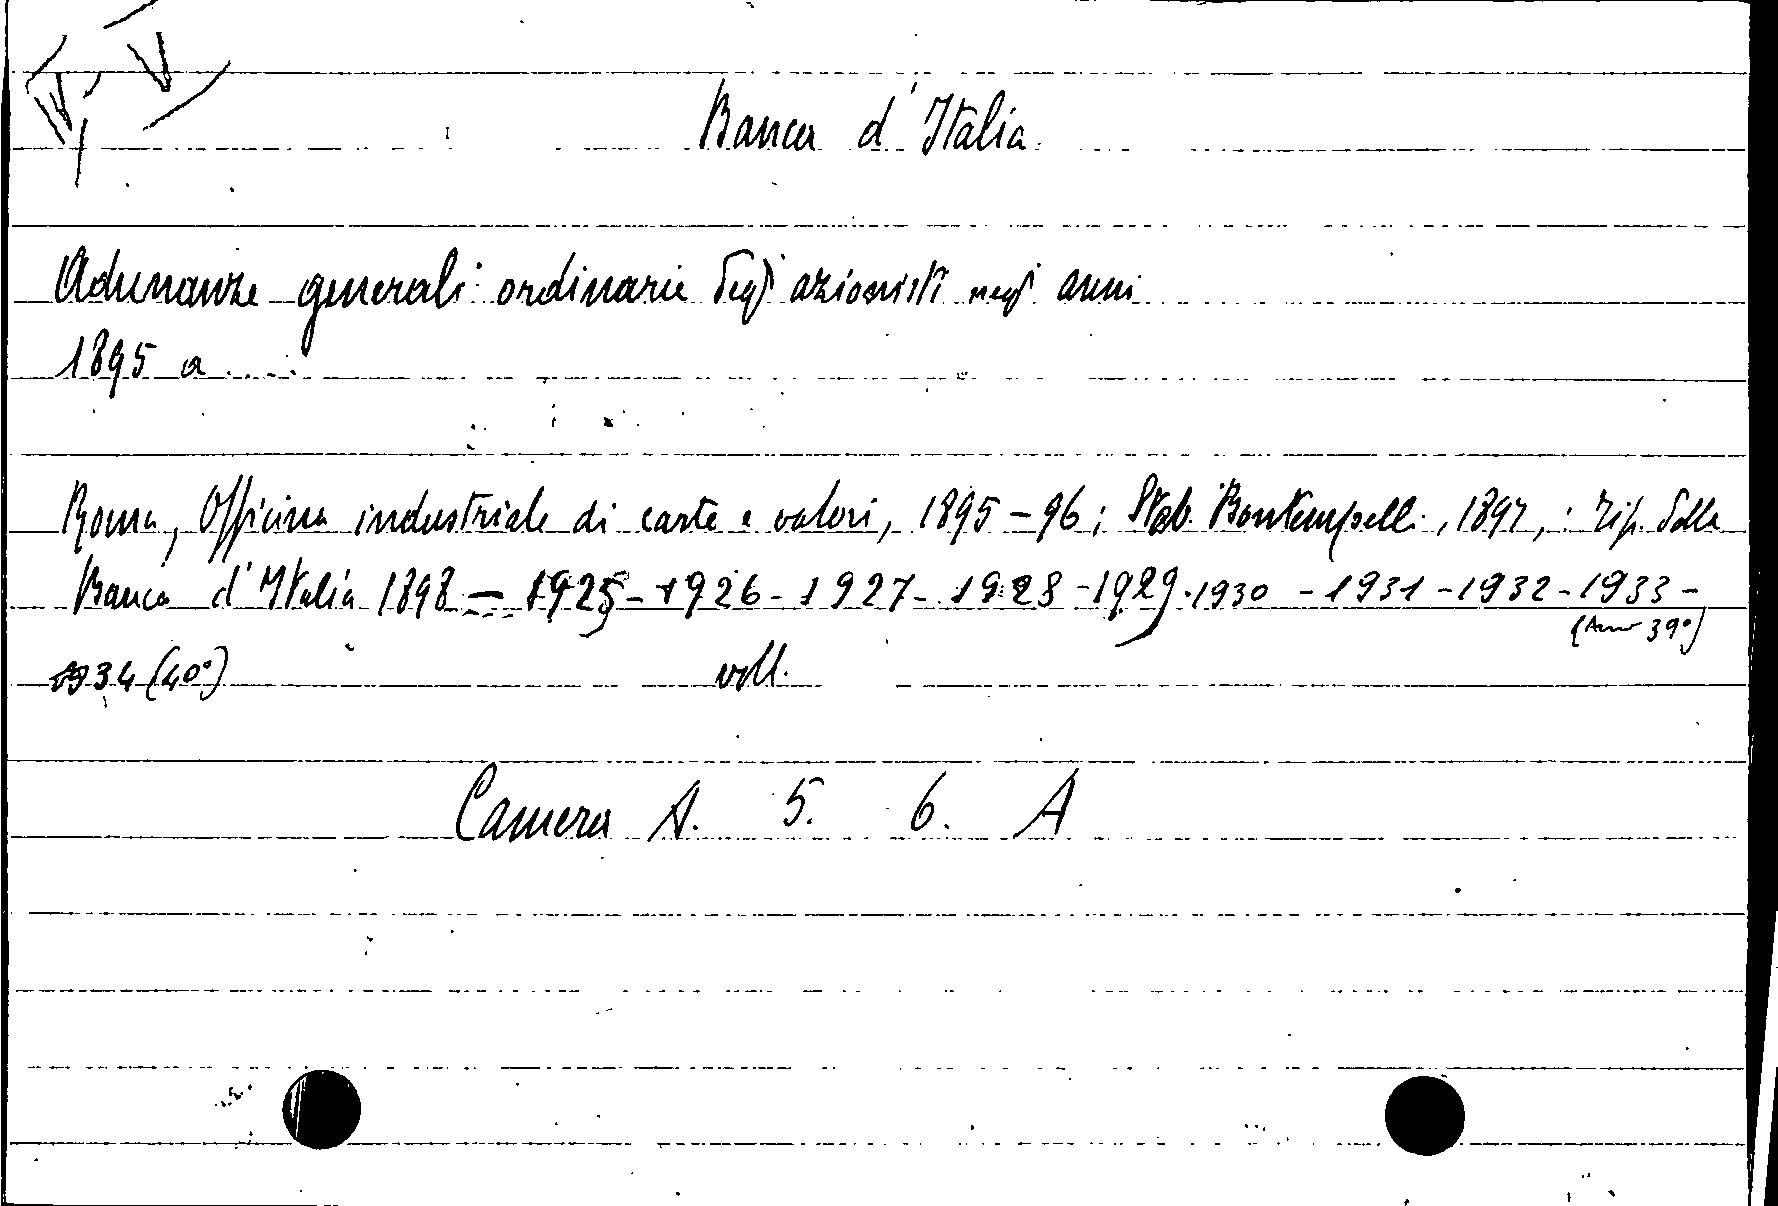 Banca d'Italia
Adunanze generali ordinarie degli azionisti negli anni
1895 a ....
Roma, Officina industriale di carte e valori, 1895-96; Stab. Bontempelli, 1897,; Tip. della
Banca d'Italia 1898 — 1925 - 1926 - 1927 - 1928 - 1929 - 1930 - 1931 - 1932 - 1933 -
(Anno 39°)
1934 (40°) voll.
Camera A. 5. 6. A